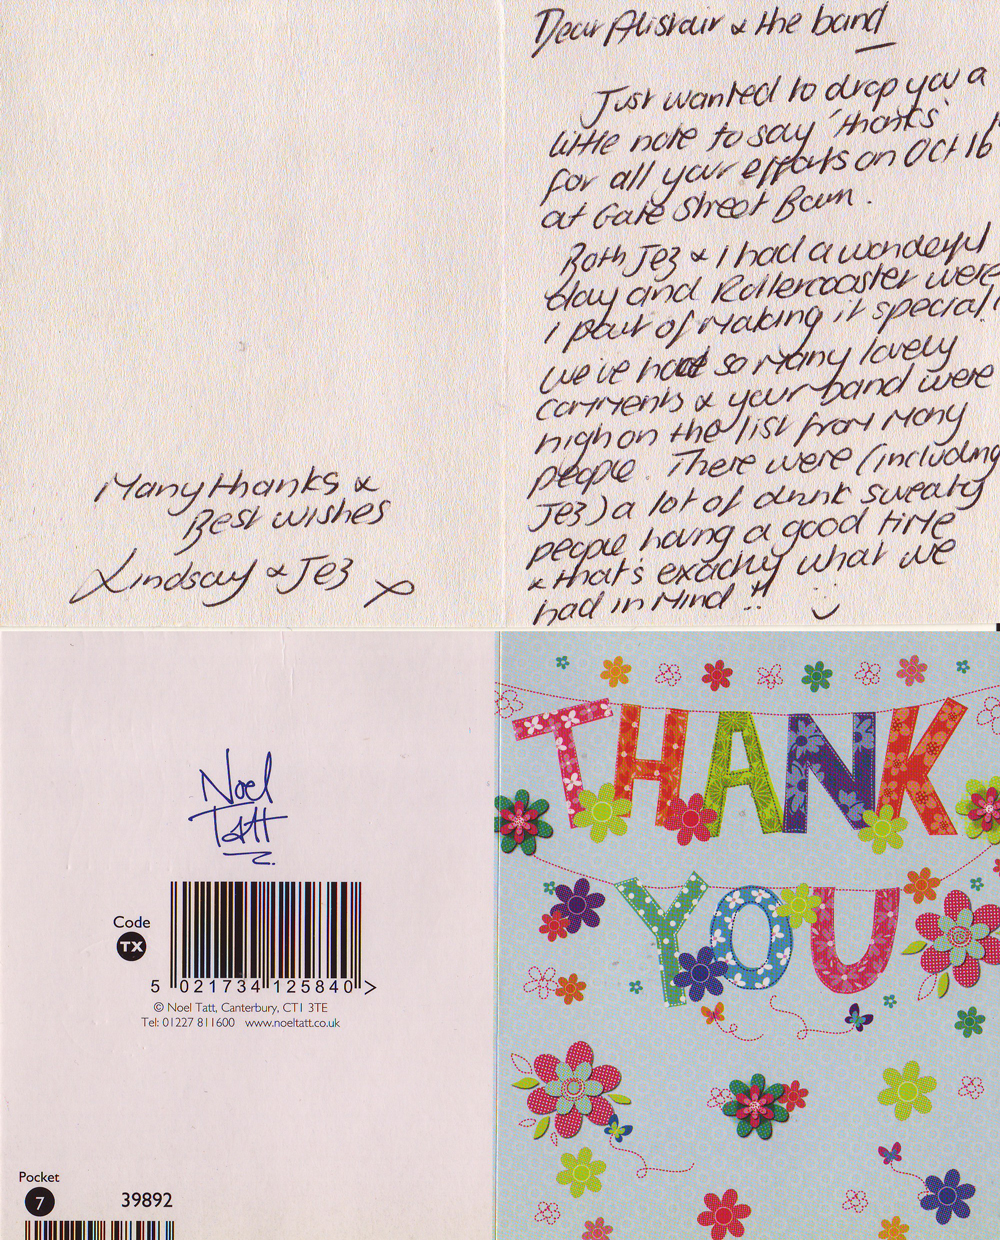 Dear Alistair & the band
Just wanted to drop you a
little note to say 'thanks'
for all your efforts on Oct 16
at Gate Street Barn.
Both Jez & I had a wonderful
day and Rollercoaster were
1 part of making it special!
We've had so many lovely
comments & your band were
high on the list from many
people. There were (including
Jez) a lot of drunk sweaty
people having a good time
& that's exactly what we
had in mind!!
Many thanks &
Best wishes
Lindsay & Jez x
Noel
Tatt
Code
TX
5 021734 125840 >
© Noel Tatt, Canterbury, CT1 3TE
Tel: 01227 811600 www.noeltatt.co.uk
Pocket
7 39892
THANK
YOU